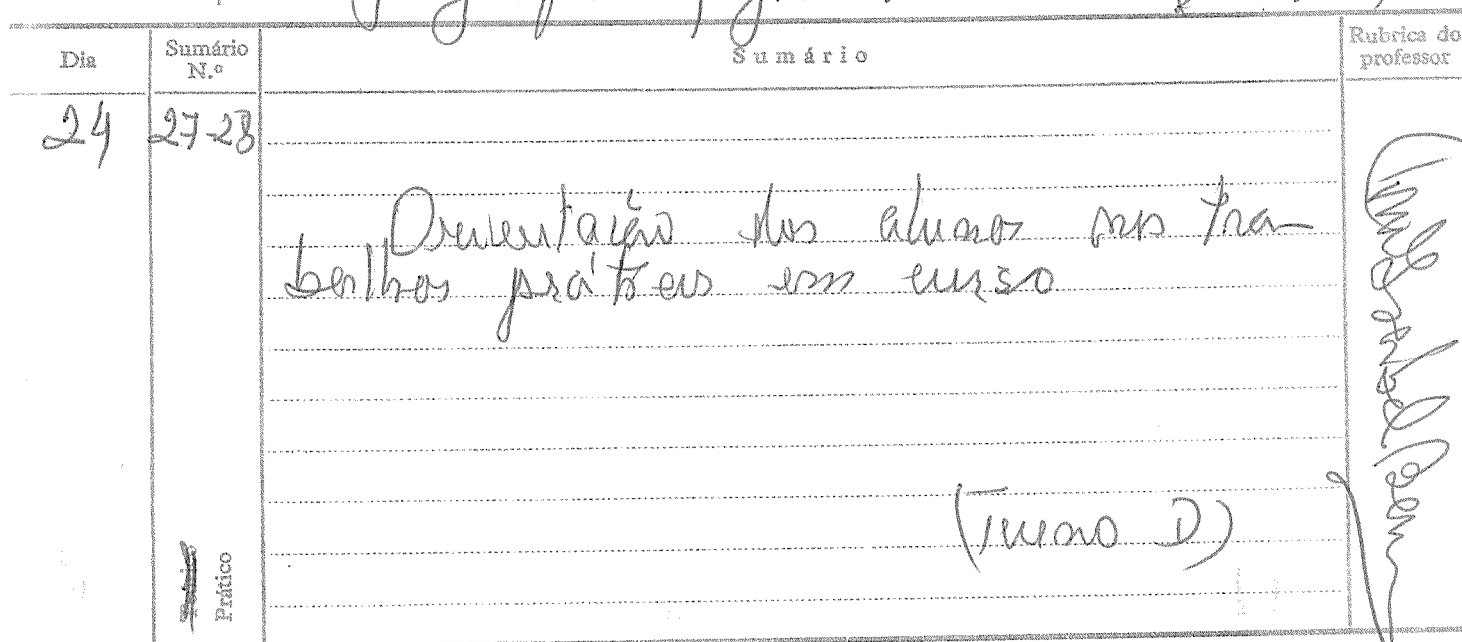 Dia
Sumário N.º
Sumário
Rubrica do professor
24
27-28
Orientação dos alunos nos tra-
balhos práticos em curso
(Turno D)
Prático